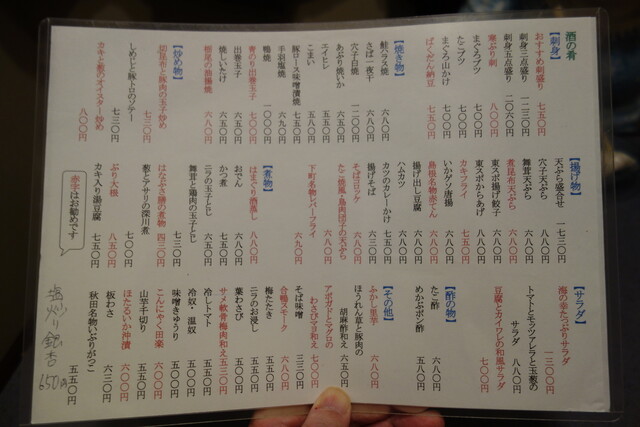 酒の肴
【刺身】
おすすめ刺盛り 七五〇円
刺身三点盛り 一二三〇円
刺身五点盛り 二〇六〇円
寒ぶり刺 八〇〇円
まぐろブツ 七〇〇円
たこブツ 七〇〇円
まぐろ山かけ 七五〇円
ばくだん納豆 七五〇円
【焼き物】
鮭ハラス焼 六八〇円
さば一夜干 六八〇円
穴子白焼 一二〇〇円
あぶり焼いか 六五〇円
エイヒレ 五八〇円
こまい 五五〇円
豚ロース味噌漬焼 七五〇円
手羽塩焼 六九〇円
鴨焼 一〇〇〇円
青のり出巻玉子 七〇〇円
出巻玉子 六五〇円
焼しいたけ 六五〇円
栃尾の油揚焼 六八〇円
【炒め物】
切昆布と豚肉の玉子炒め 七三〇円
しめじと豚トロのソテー 七三〇円
カキと葱のオイスター炒め 八〇〇円
【揚げ物】
天ぷら盛合せ 一七三〇円
穴子天ぷら 八八〇円
舞茸天ぷら 六八〇円
煮昆布天ぷら 六八〇円
東スポ揚げ餃子 六八〇円
東スポからあげ 六八〇円
カキフライ 七五〇円
いかゲソ唐揚 六八〇円
島根名物赤てん 六八〇円
揚げ出し豆腐 六八〇円
ハムカツ 六八〇円
カツのカレーかけ 七五〇円
揚げそば 六三〇円
そばコロッケ 六八〇円
たこ焼風と鳥肉団子の天ぷら 六八〇円
下町名物レバーフライ 六九〇円
【煮物】
はまぐり酒蒸し 八八〇円
おでん 六八〇円
かつ煮 七五〇円
ニラの玉子とじ 六五〇円
舞茸と鶏肉の玉子とじ 七三〇円
はなぶさ膳の煮物 四三〇円
葱とアサリの深川煮 七〇〇円
ぶり大根 八五〇円
カキ入り湯豆腐 七五〇円
赤字はお勧めです
【サラダ】
海の幸たっぷりサラダ 一三〇〇円
トマトとモッツァレラと玉葱のサラダ 八八〇円
豆腐とカイワレの和風サラダ 七〇〇円
【酢の物】
たこ酢 六八〇円
めかぶポン酢 五八〇円
【その他】
ふかし里芋 六八〇円
ほうれん草と豚肉の胡麻酢和え 六五〇円
アボガドとマグロのわさびマヨ和え 七〇〇円
そば味噌 三三〇円
合鴨スモーク 六八〇円
梅たたき 五五〇円
ニラのお浸し 五五〇円
葉わさび 五五〇円
サメ軟骨梅肉和え 五三〇円
冷しトマト 五五〇円
冷奴・温奴 五〇〇円
味噌きゅうり 五〇〇円
こんにゃく田楽 六〇〇円
山芋千切り 五五〇円
ほたるいか沖漬 六〇〇円
板わさ 六三〇円
秋田名物いぶりがっこ 五五〇円
塩炒り銀杏 650円